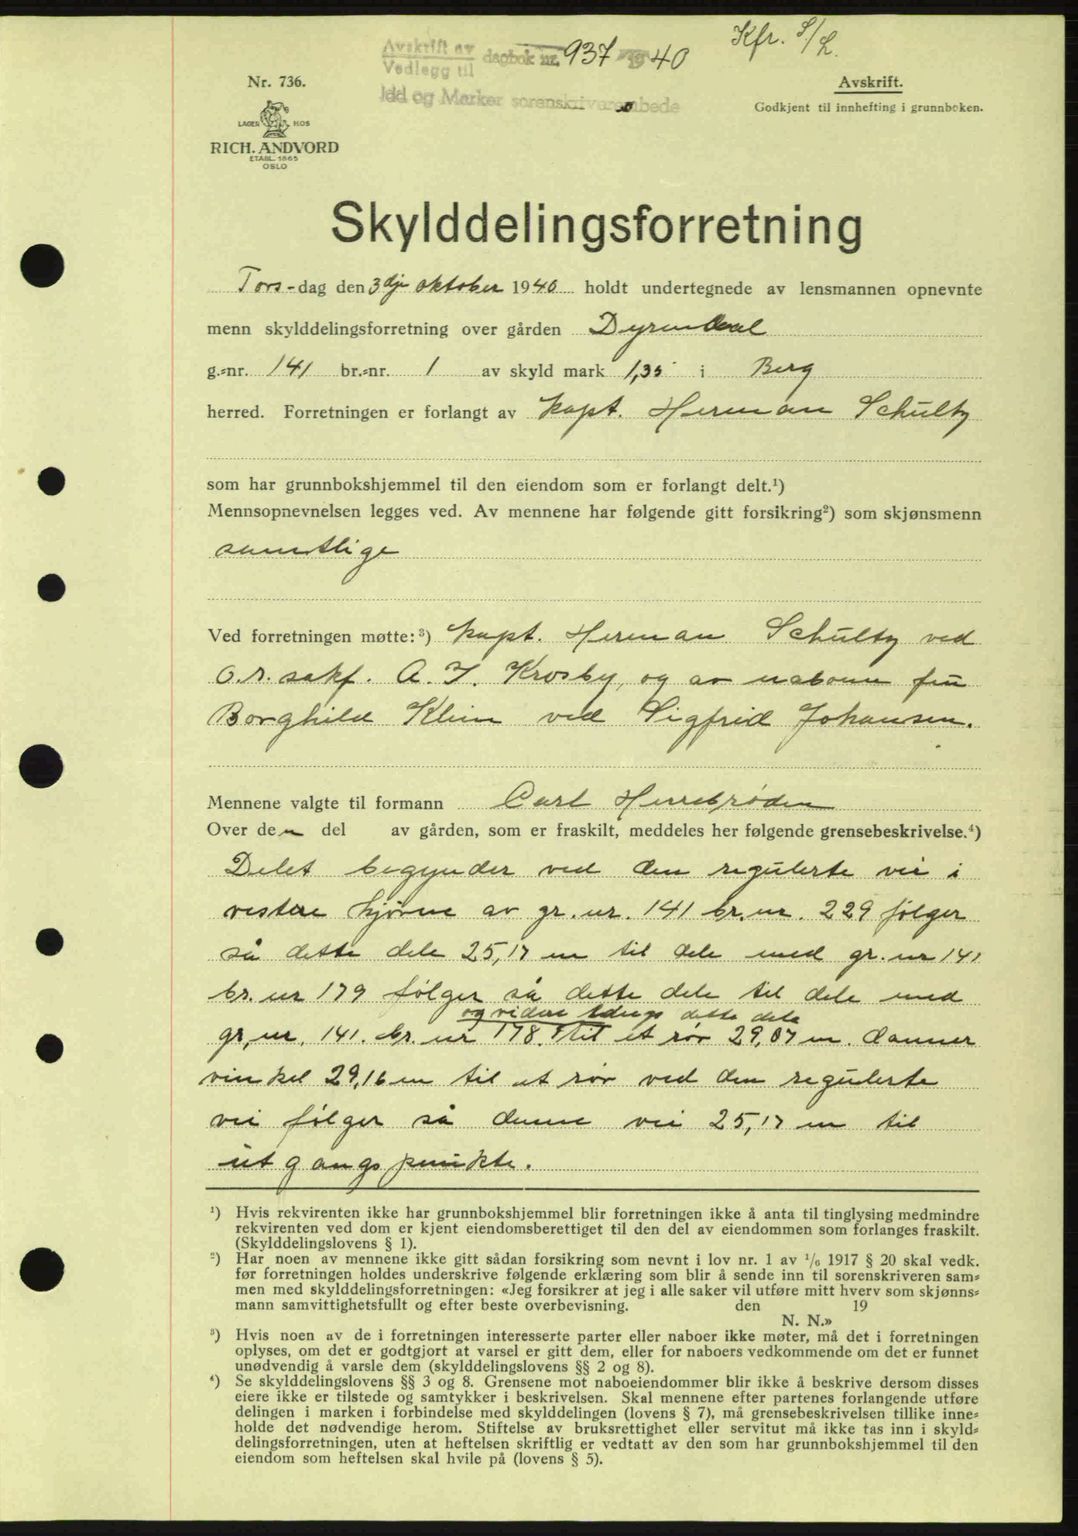 Kfr. S/L.
Avskrift av
Vedlegg til
dagbok nr. 937 1940
Idd og Marker sorenskriverembede
Nr. 736.
LAGER HOS
RICH. ANDVORD
ETABL. 1865
OSLO
Avskrift.
Godkjent til innhefting i grunnboken.
Skylddelingsforretning
Tors-dag den 3dje oktober 1940 holdt undertegnede av lensmannen opnevnte
menn skylddelingsforretning over gården Dyrendal
g.=nr. 141 br.=nr. 1 av skyld mark 1,35 i Berg
herred. Forretningen er forlangt av kapt. Herman Schultz
som har grunnbokshjemmel til den eiendom som er forlangt delt.¹)
Mennsopnevnelsen legges ved. Av mennene har følgende gitt forsikring²) som skjønsmenn
samtlige
Ved forretningen møtte:³) kapt. Herman Schultz ved
o.r. sakf. A. F. Krosby, og av naboene fru
Borghild Klein ved Sigfrid Johansen.
Mennene valgte til formann Carl Herrebrøden
Over den del av gården, som er fraskilt, meddeles her følgende grensebeskrivelse.⁴)
Delet begynder ved den regulerte vei i
vestre hjørne av gr. nr. 141 br. nr. 229 følger
så dette dele 25,17 m til dele med gr. nr 141
br. nr 179 følger så dette dele til dele med
og videre langs dette dele
gr. nr. 141. br. nr 178. til et rør 29,07 m. danner
vinkel 29,16 m til et rør ved den regulerte
vei følger så denne vei 25,17 m til
utgangspunkte.
¹) Hvis rekvirenten ikke har grunnbokshjemmel blir forretningen ikke å anta til tinglysing medmindre
rekvirenten ved dom er kjent eiendomsberettiget til den del av eiendommen som forlanges fraskilt.
(Skylddelingslovens § 1).
²) Har noen av mennene ikke gitt sådan forsikring som nevnt i lov nr. 1 av ¹/₆ 1917 § 20 skal vedk.
før forretningen holdes underskrive følgende erklæring som blir å sende inn til sorenskriveren sam=
men med skylddelingsforretningen: «Jeg forsikrer at jeg i alle saker vil utføre mitt hverv som skjønns=
mann samvittighetsfullt og efter beste overbevisning. den 19
N. N.»
³) Hvis noen av de i forretningen interesserte parter eller naboer ikke møter, må det i forretningen
oplyses, om det er godtgjort at varsel er gitt dem, eller for naboers vedkommende om det er funnet
unødvendig å varsle dem (skylddelingslovens §§ 2 og 8).
⁴) Se skylddelingslovens §§ 3 og 8. Grensene mot naboeiendommer blir ikke å beskrive dersom disses
eiere ikke er tilstede og samtykker i beskrivelsen. Skal mennene efter partenes forlangende utføre
delingen i marken i forbindelse med skylddelingen (lovens § 7), må grensebeskrivelsen tillike inne=
holde det nødvendige herom. Stiftelse av bruksrettighet eller servitut må ikke tas inn i skyld=
delingsforretningen, uten at heftelsen skriftlig er vedtatt av den som har grunnbokshjemmel til den
eiendom som heftelsen skal hvile på (lovens § 5).